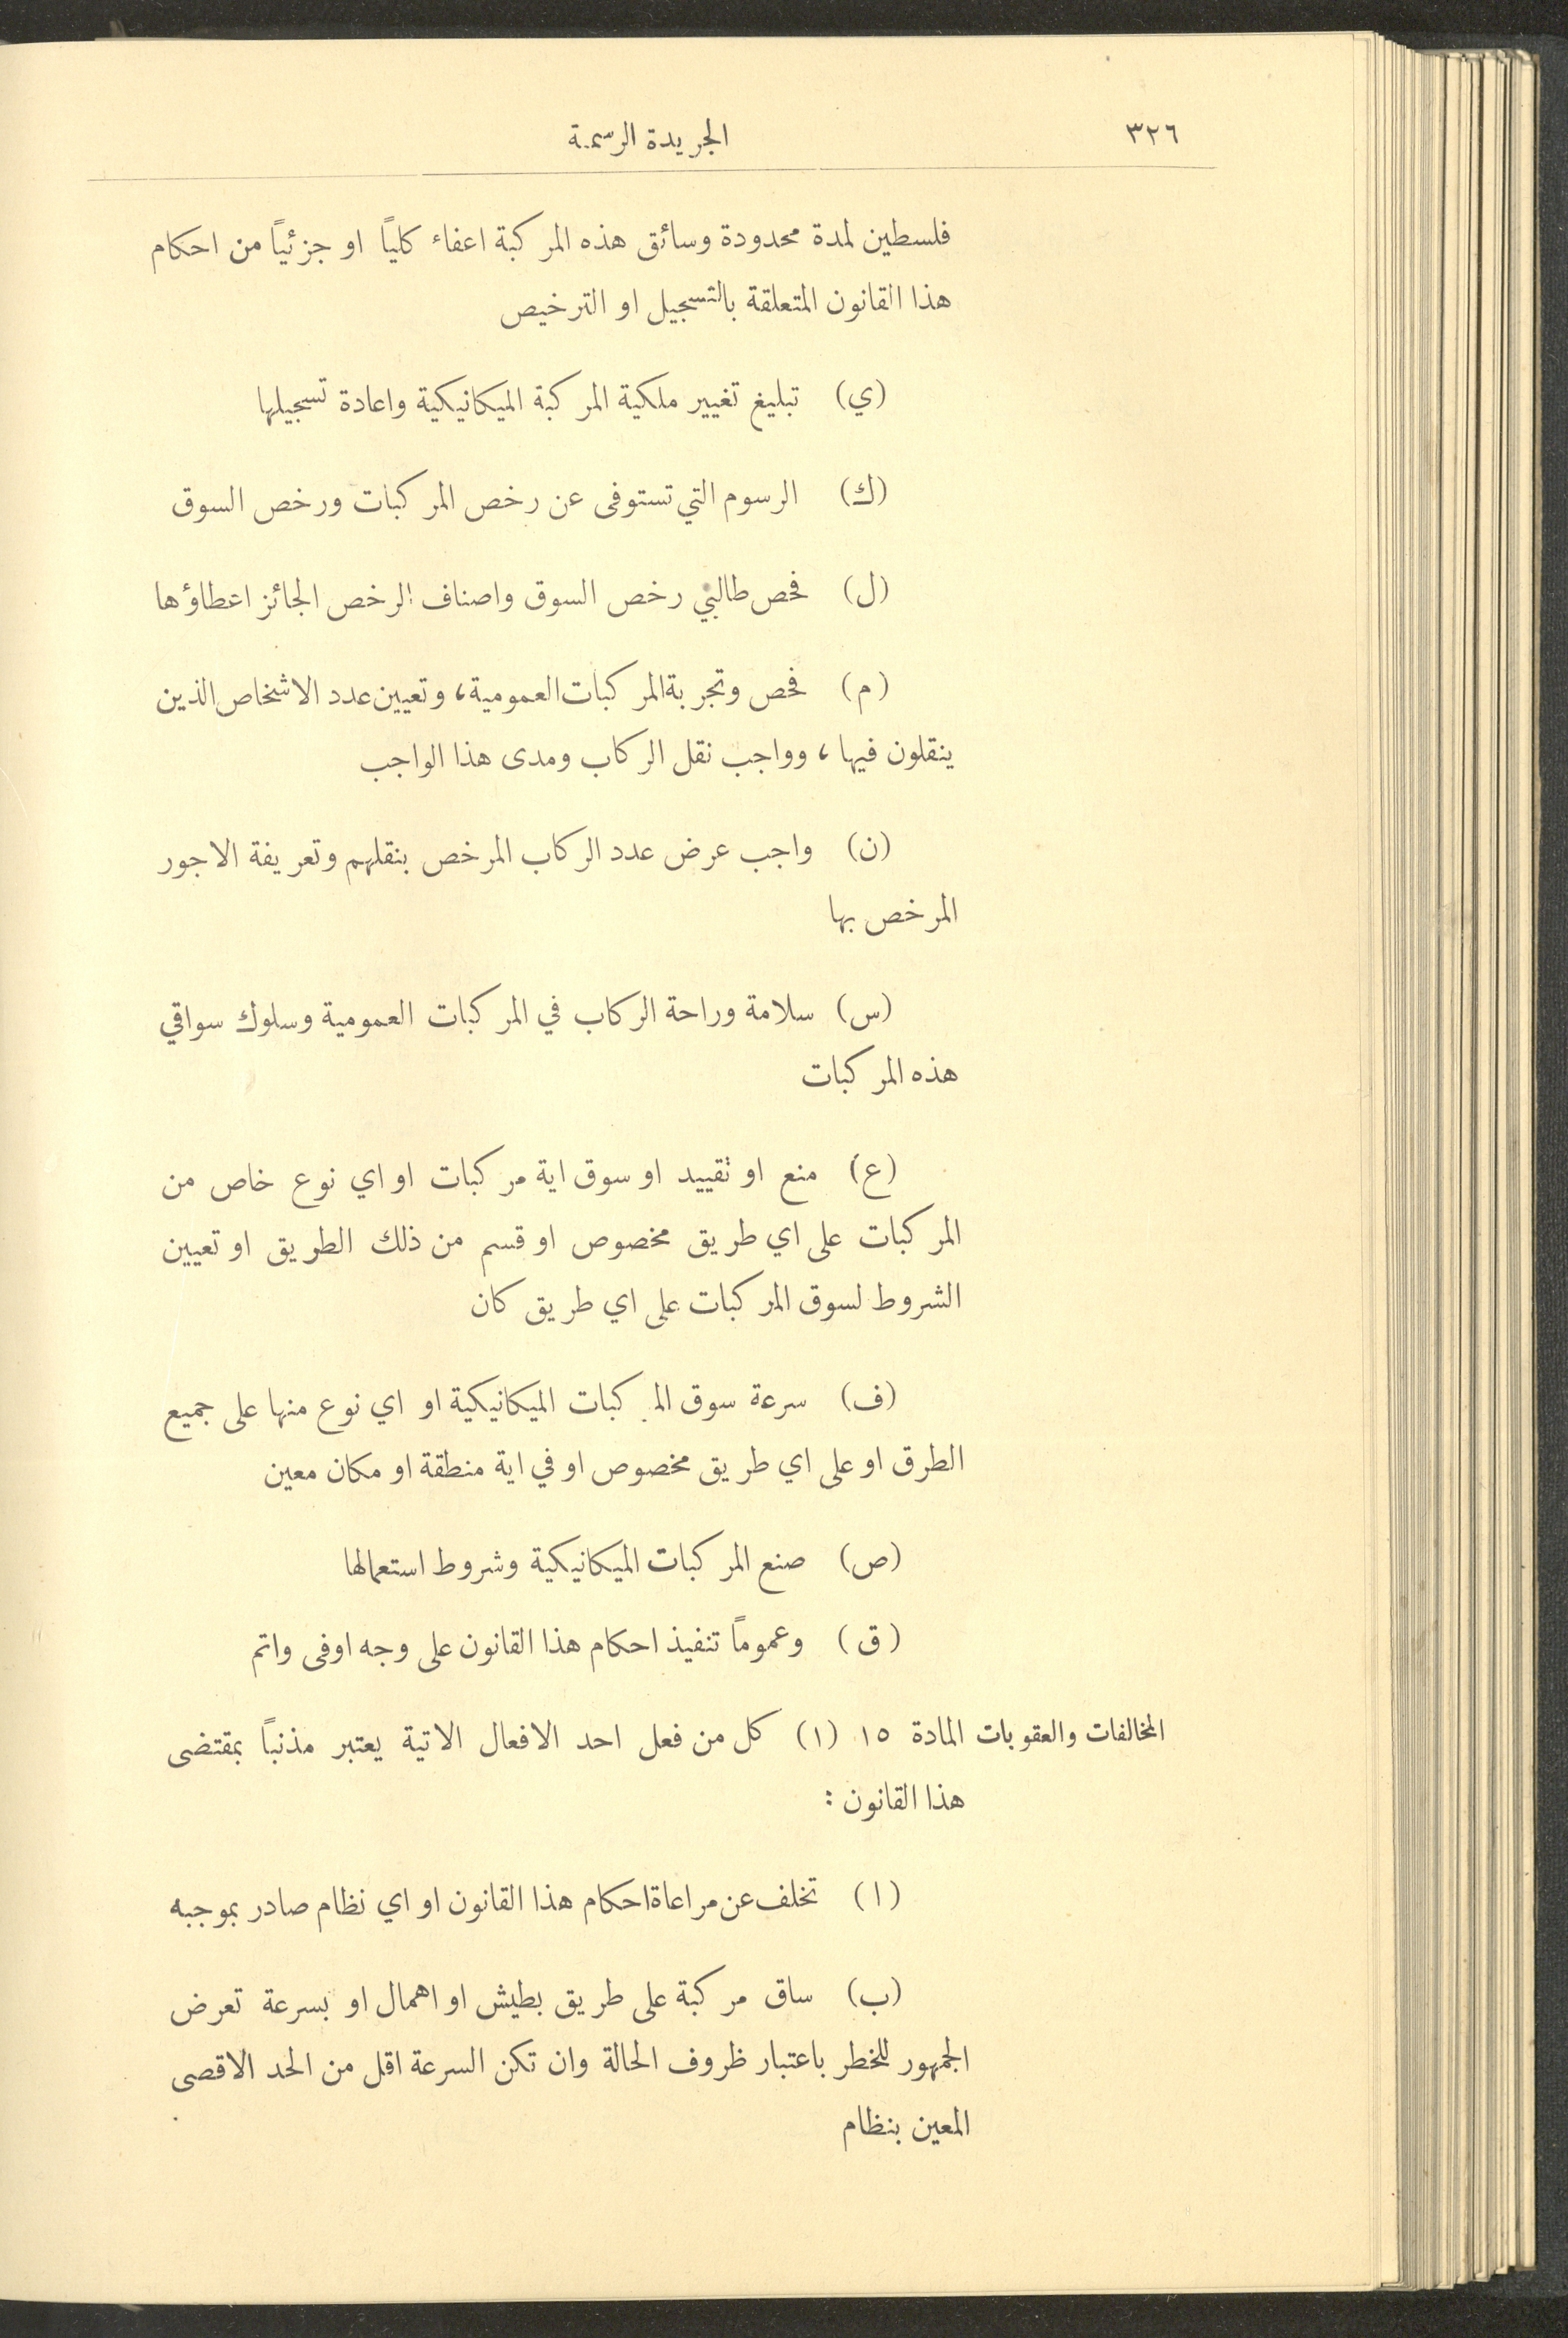 ٣٢٦
الجريدة الرسمية
فلسطين لمدة محدودة وسائق هذه المركبة اعفاء كلياً او جزئياً من احكام
هذا القانون المتعلقة بالتسجيل او الترخيص
(ي) تبليغ تغيير ملكية المركبة الميكانيكية واعادة تسجيلها
(ك) الرسوم التي تستوفى عن رخص المركبات ورخص السوق
(ل) فحص طالبي رخص السوق واصناف الرخص الجائز اعطاؤها
(م) فحص وتجربة المركبات العمومية، وتعيين عدد الاشخاص الذين
ينقلون فيها، وواجب نقل الركاب ومدى هذا الواجب
(ن) واجب عرض عدد الركاب المرخص بنقلهم وتعريفة الاجور
المرخص بها
(س) سلامة وراحة الركاب في المركبات العمومية وسلوك سواقي
هذه المركبات
(ع) منع او تقييد او سوق اية مركبات او اي نوع خاص من
المركبات على اي طريق مخصوص او قسم من ذلك الطريق او تعيين
الشروط لسوق المركبات على اي طريق كان
(ف) سرعة سوق المركبات الميكانيكية او اي نوع منها على جميع
الطرق او على اي طريق مخصوص او في اية منطقة او مكان معين
(ص) صنع المركبات الميكانيكية وشروط استعمالها
(ق) وعموماً تنفيذ احكام هذا القانون على وجه اوفى واتم
المخالفات والعقوبات المادة ١٥ (١) كل من فعل احد الافعال الاتية يعتبر مذنباً بمقتضى
هذا القانون :
(ا) تخلف عن مراعاة احكام هذا القانون او اي نظام صادر بموجبه
(ب) ساق مركبة على طريق بطيش او اهمال او بسرعة تعرض
الجمهور للخطر باعتبار ظروف الحالة وان تكن السرعة اقل من الحد الاقصى
المعين بنظام